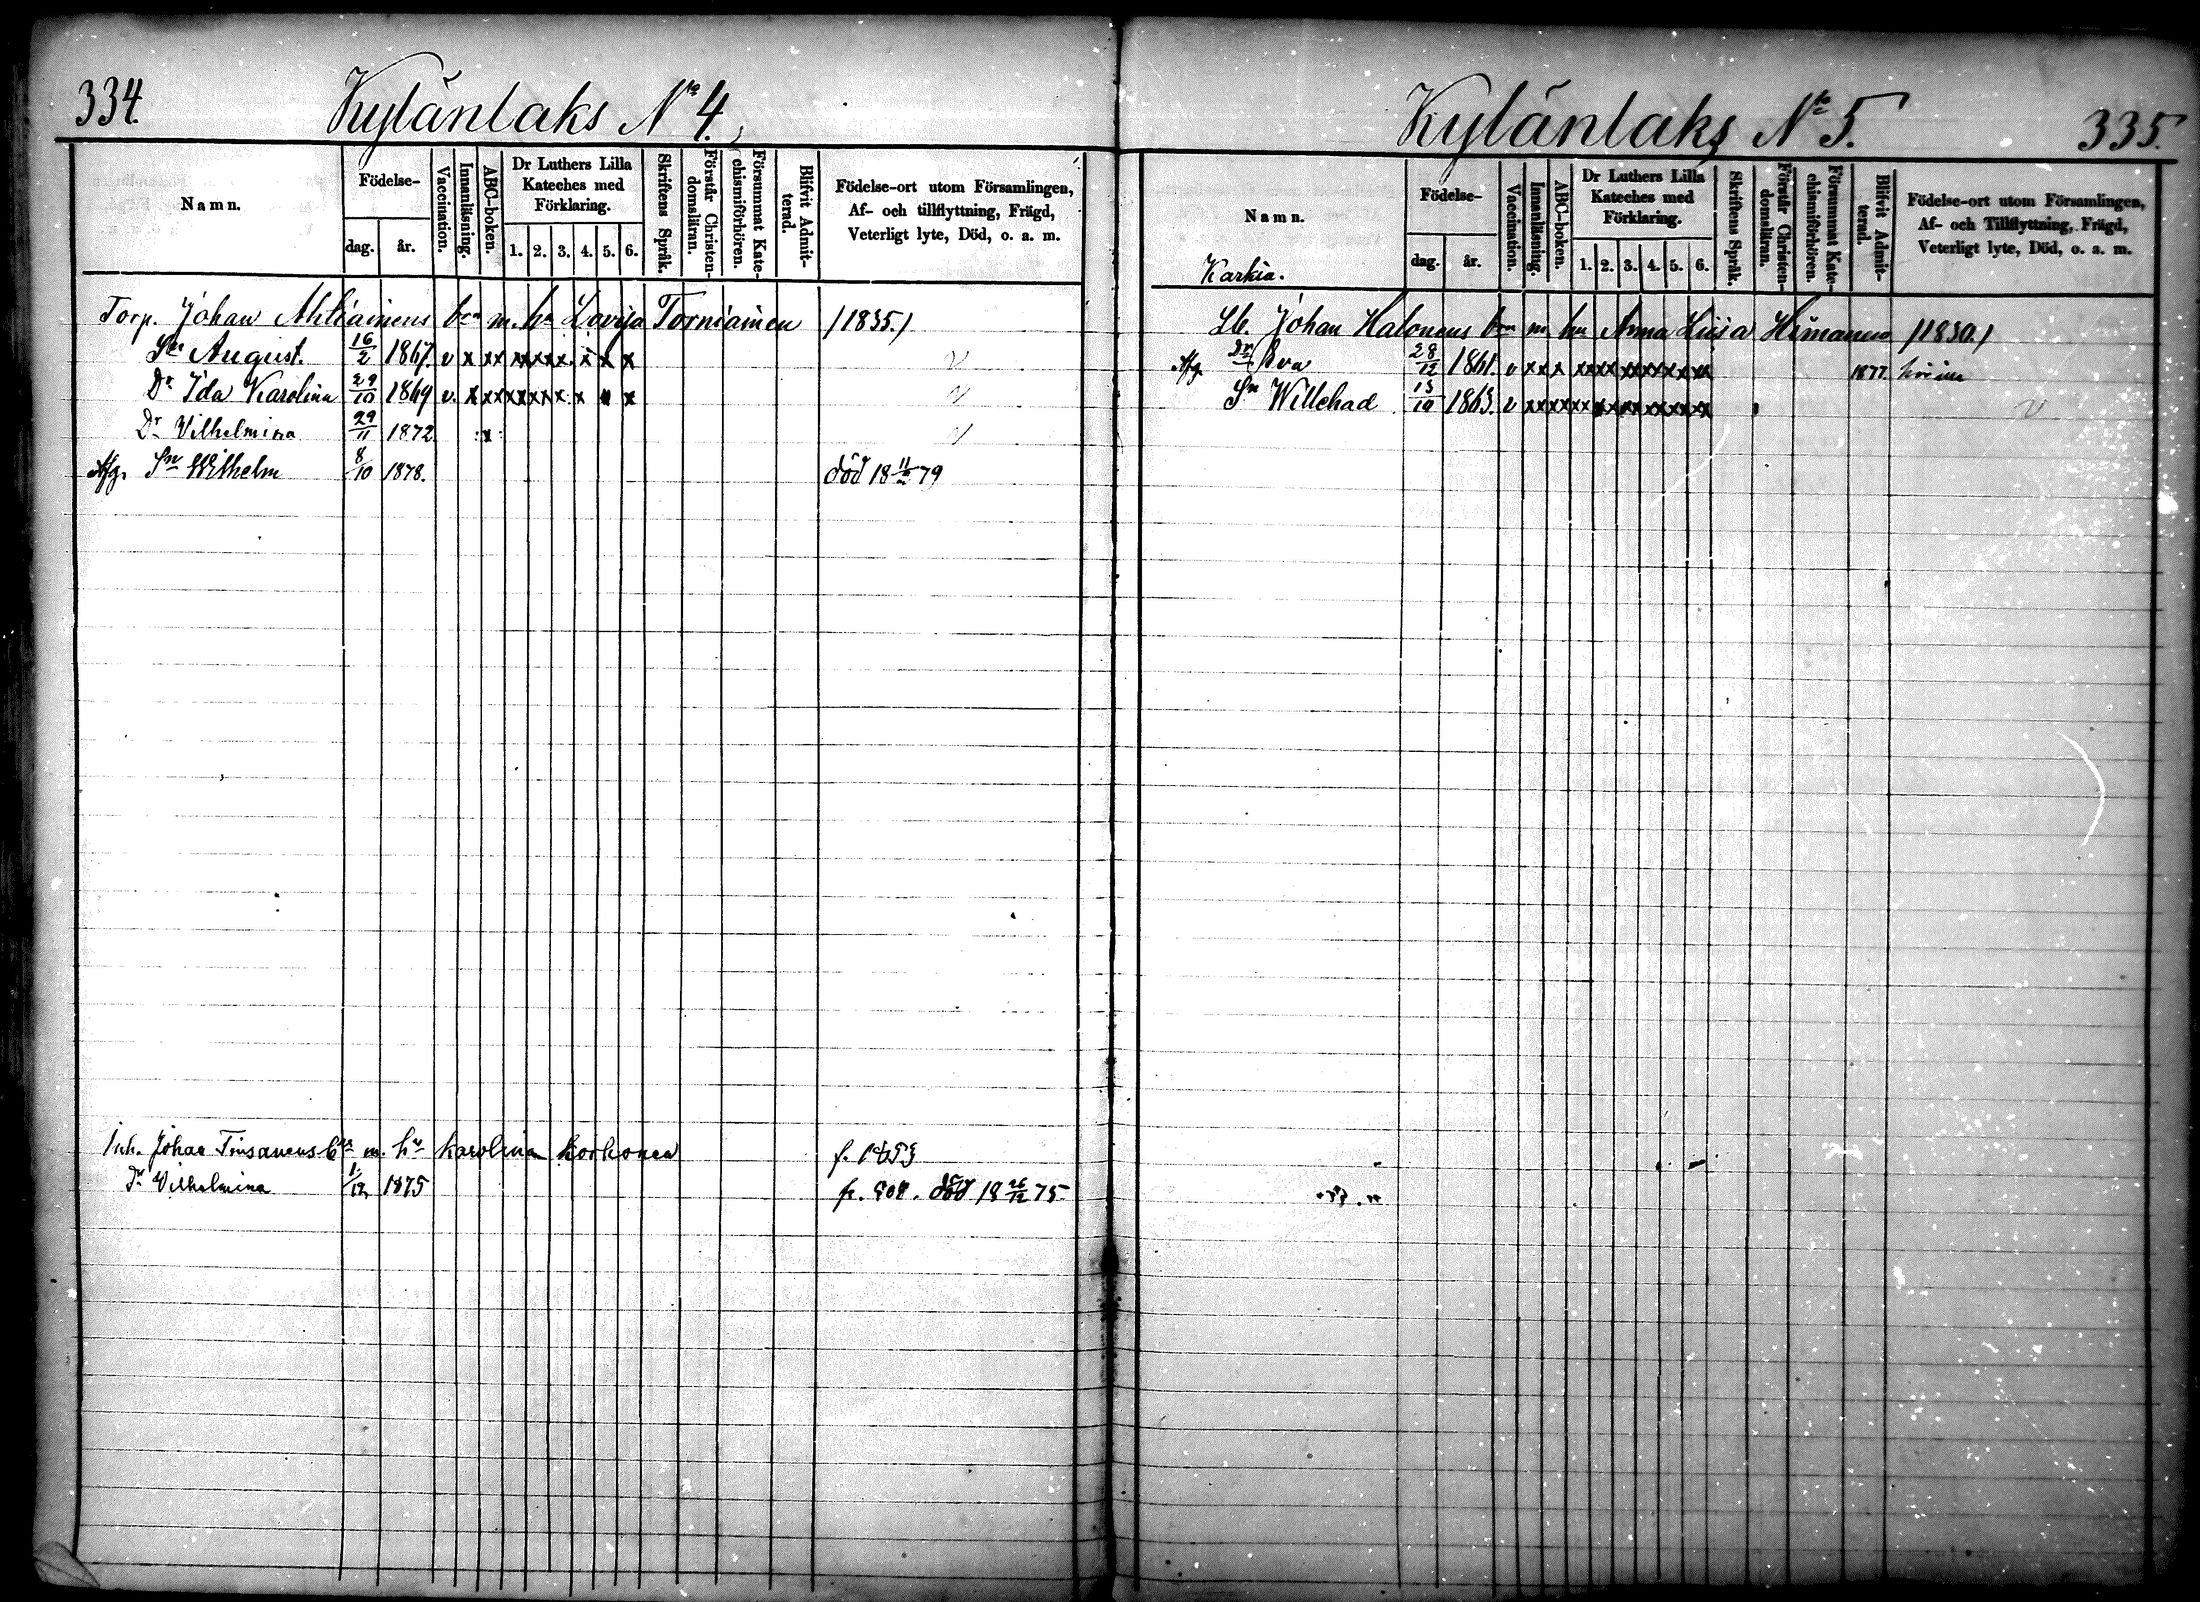 334.
Kylänlaks No 4.
Namn.
Födelse-
dag.
år.
Vaccination.
Innanläsning.
ABC-boken.
Dr Luthers Lilla Kateches med Förklaring.
1. 2. 3. 4. 5. 6.
Skriftens Språk.
Förstår Christendomsläran.
Försummat Katechismiförhören.
Blifvit Admitterad.
Födelse-ort utom Församlingen,
Af- och tillflyttning, Frägd,
Veterligt lyte, Död, o. a. m.
Torp. Johan Ahliainens brn m. hu Lovisa Torniainen /1835./
Sn August. 16/2 1867. v x xx xxxxx. x x x v
Dr Ida Karolina 29/10 1869 v. x xxxxxx. x x x v
Dr Vilhelmina 29/11 1872 :x: v
Afg. Sn Wilhelm 8/10 1878. död 18 11/2 79
Inh. Johan brn m. hu Karolina Korhonen f. 1853
Dr Vilhelmina 1/12 1875 död 18 26/12 75
Kylänlaks No 5.
335.
Namn.
Karkia.
Födelse-
dag.
år.
Vaccination.
Innanläsning.
ABC-boken.
Dr Luthers Lilla Kateches med Förklaring.
1. 2. 3. 4. 5. 6.
Skriftens Språk.
Förstår Christendomsläran.
Försummat Katechismiförhören.
Blifvit Admitterad.
Födelse-ort utom Församlingen,
Af- och Tillflyttning, Frägd,
Veterligt lyte, Död, o. a. m.
Lb. Johan Halonens brn m. hu Anna Liisa Himanen /1830./
Afg. Dr Eva 28/12 1861. v xxx xxxxxxxxxxx 1877.
Sn Willehad 13/10 1863. v xxxxxxxxxxxxx v